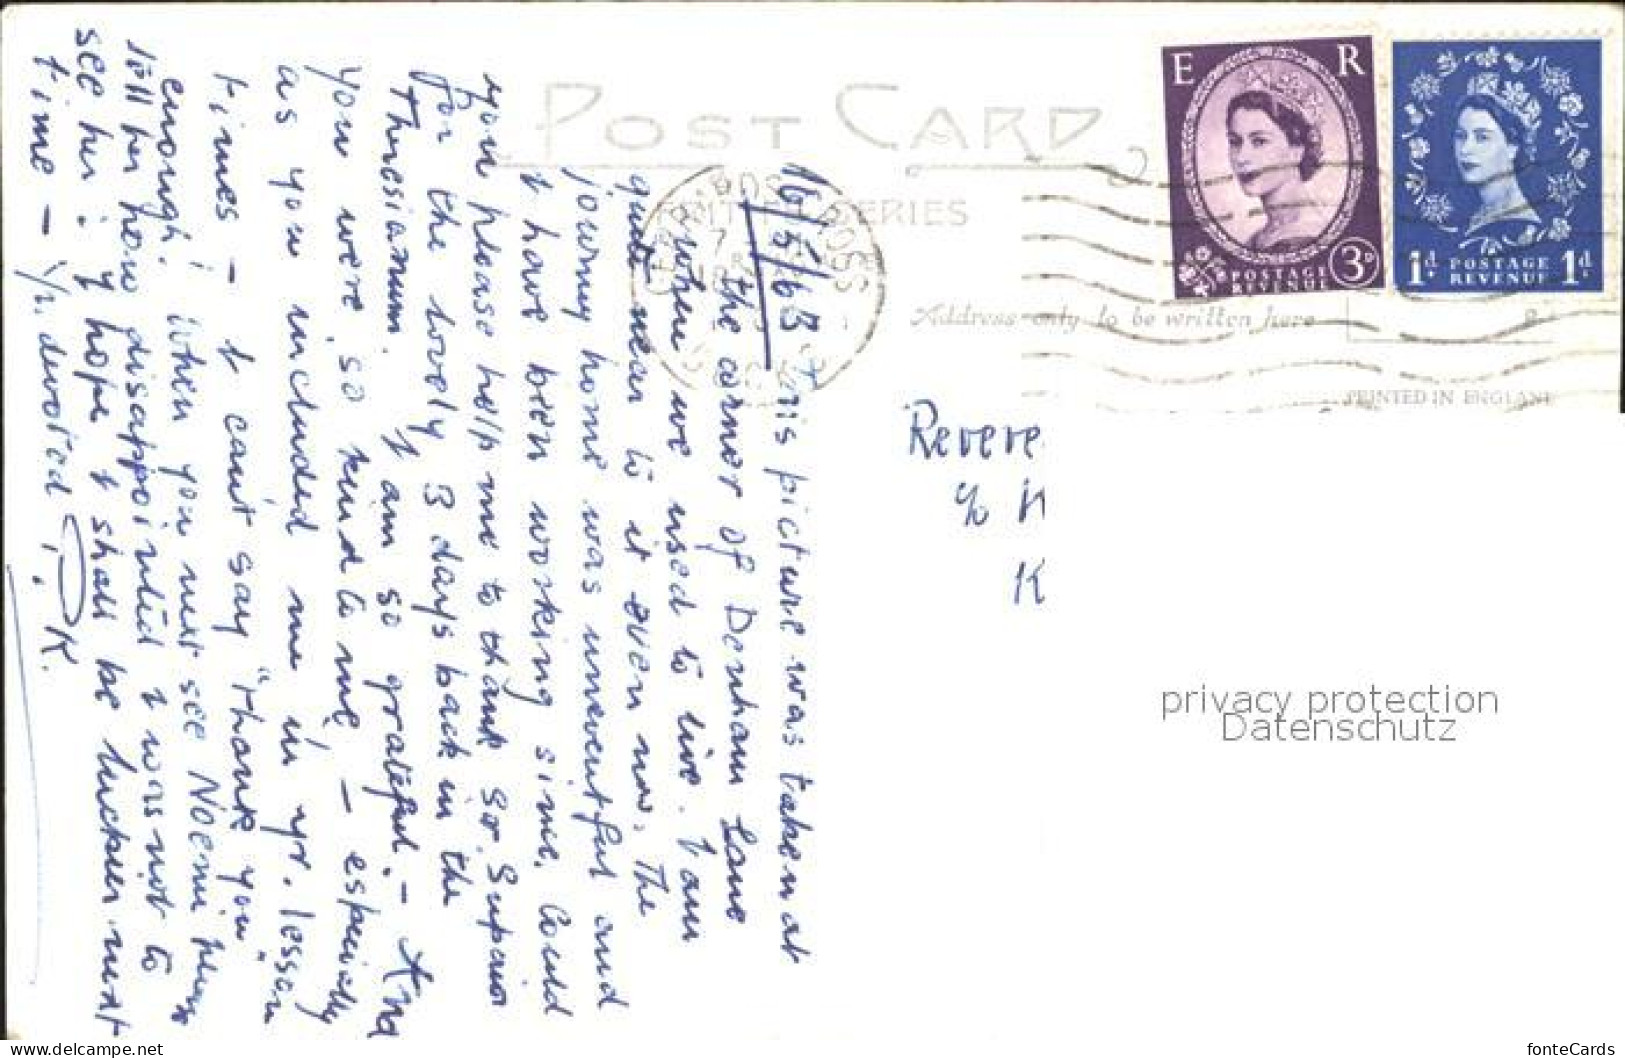 POST CARD
BRITISH SERIES
Address only to be written here
PRINTED IN ENGLAND
E R
POSTAGE
REVENUE
3D
1d. POSTAGE 1d.
REVENUE
GERRARDS CROSS
16/5/63 This picture was taken at
the corner of Denham Lane
when we used to live. I am
quite near to it even now. The
journey home was uneventful and
I have been working since. Could
you please help me to thank Sr. Superior
for the lovely 3 days back in the
Theresianum. I am so grateful. - And
you were so kind to me - especially
as you included me in yr. lesson
times - I can't say "thank you"
enough! When you next see Noemi please
tell her how disappointed I was not to
see her: I hope I shall be luckier next
time - Yr. devoted, K.
Revere
c/o H
K
privacy protection
Datenschutz
delcampe.net
fonteCards